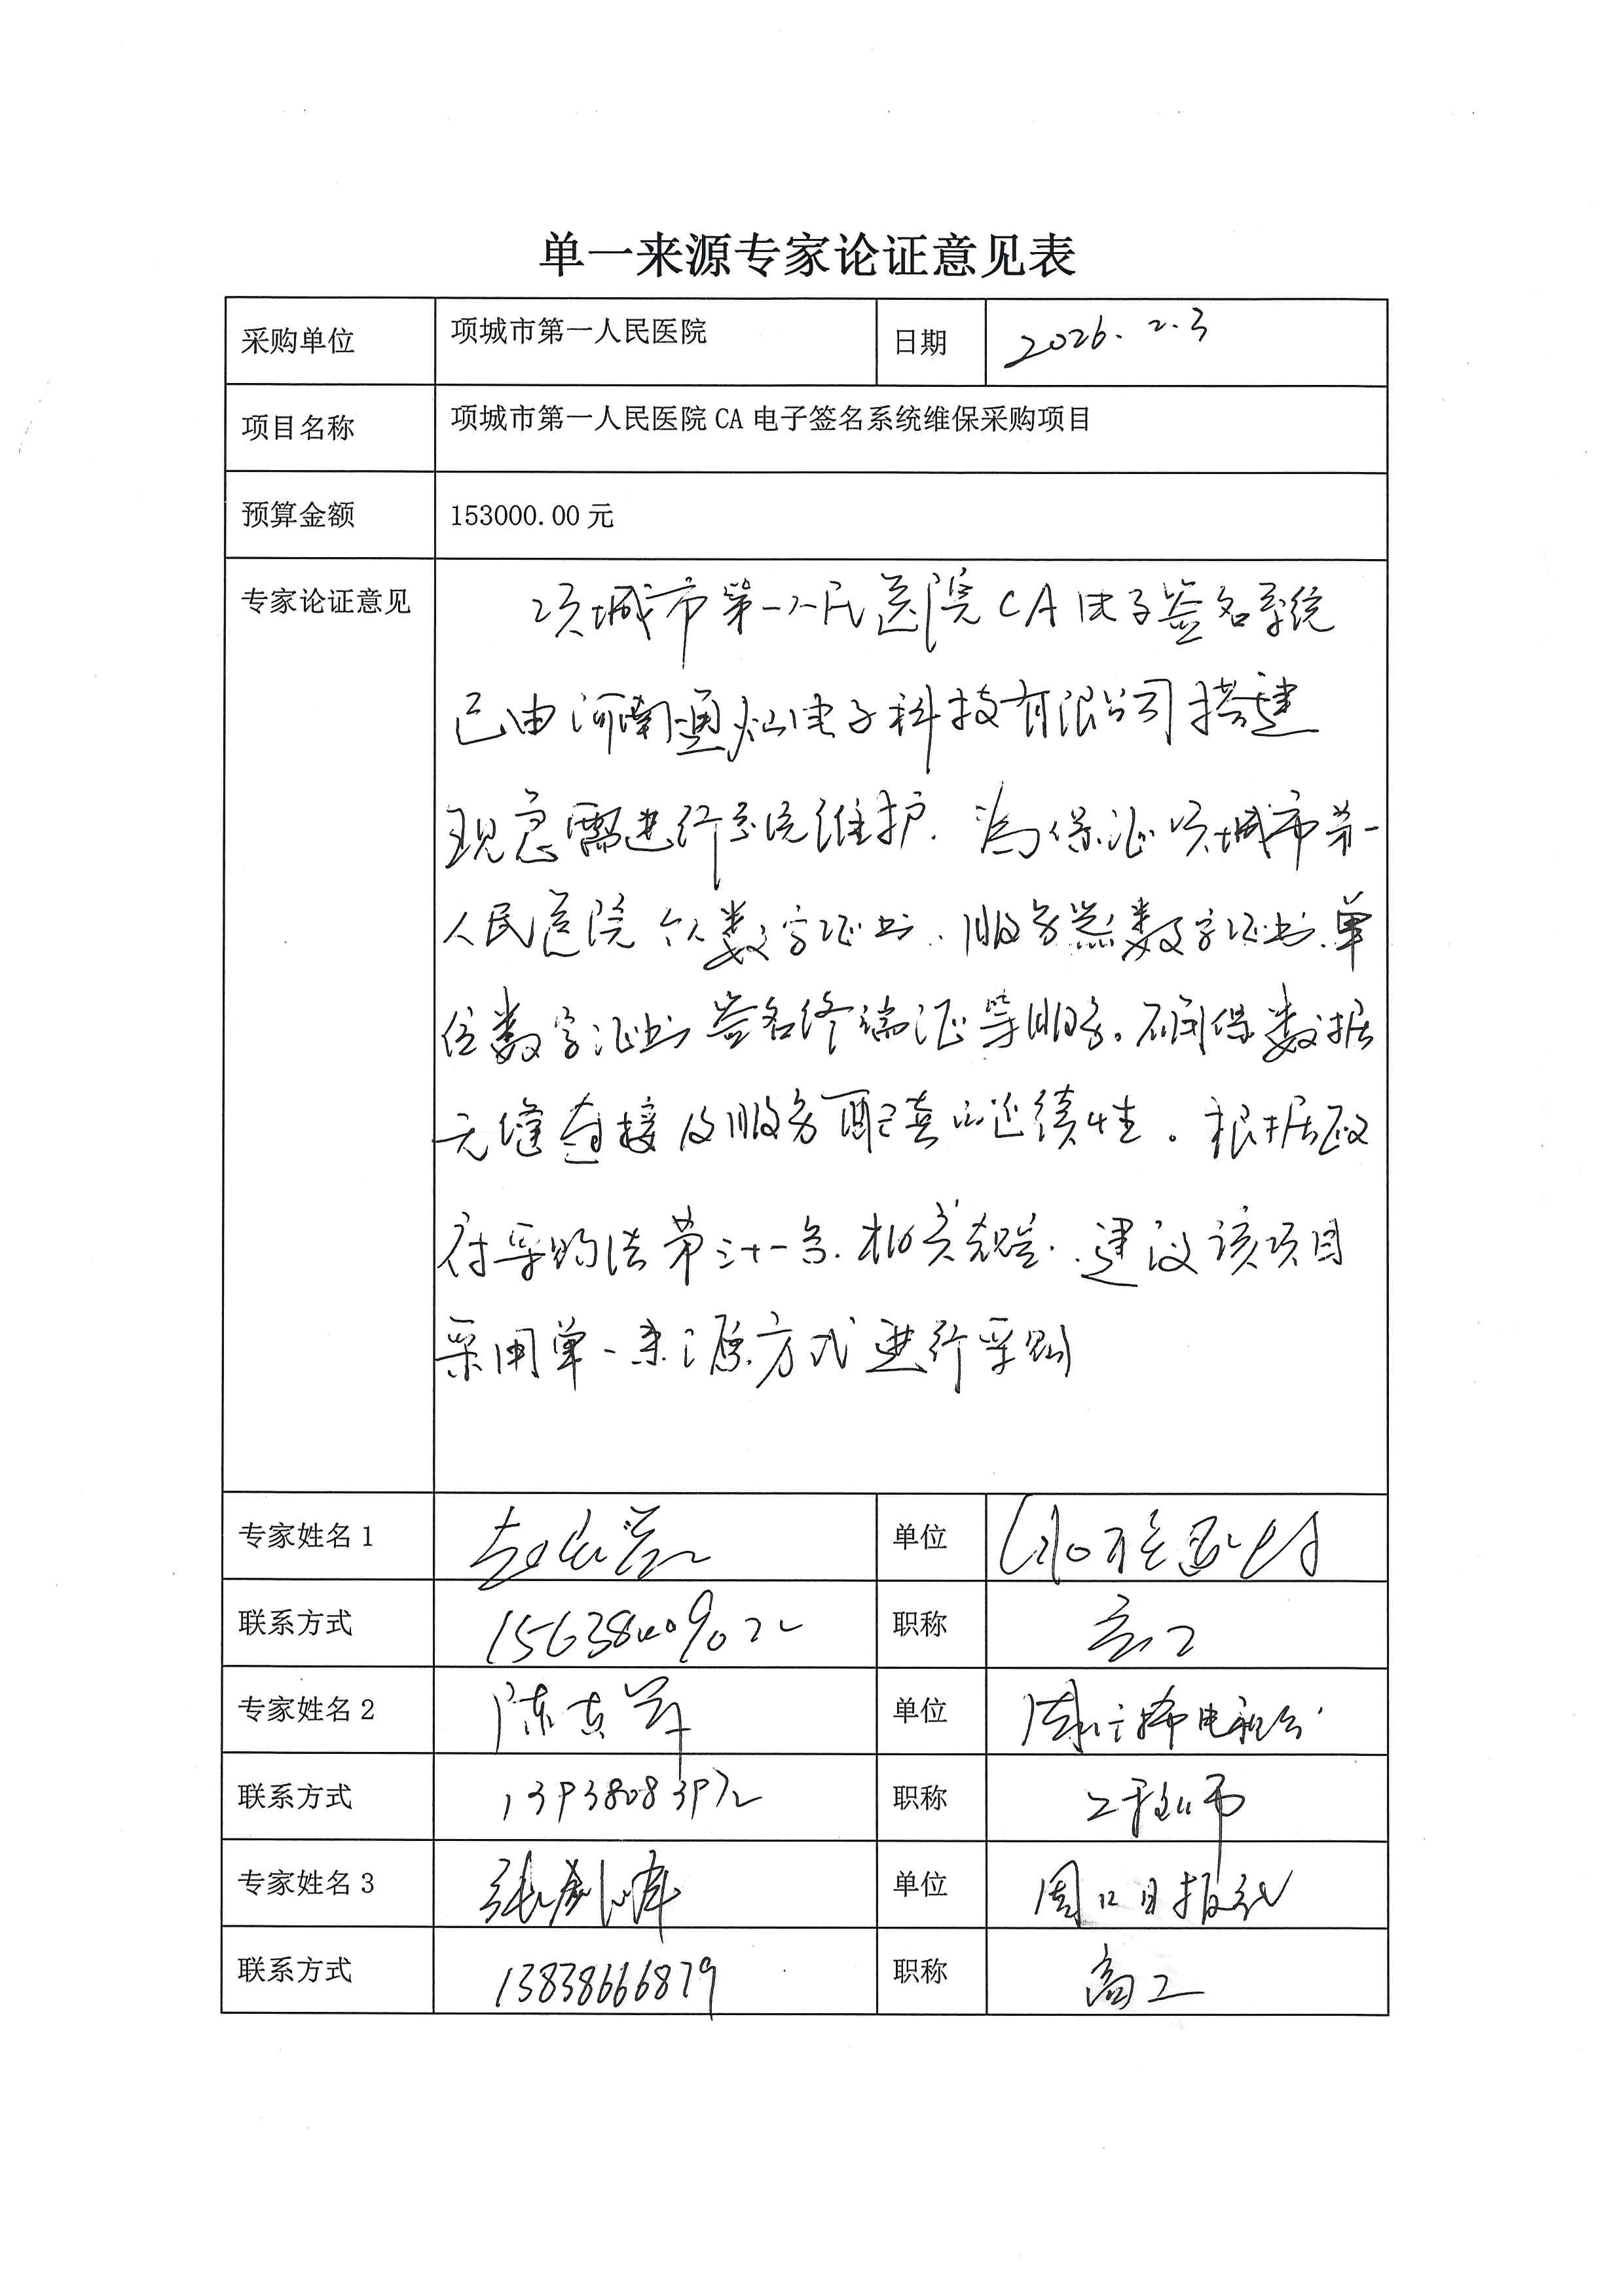 单一来源专家论证意见表
采购单位 项城市第一人民医院 日期 2026.2.3
项目名称 项城市第一人民医院CA电子签名系统维保采购项目
预算金额 153000.00元
专家论证意见 项城市第一人民医院CA电子签名系统
已由河南通灿电子科技有限公司搭建
现急需进行系统维护.为保证项城市第一
人民医院个人数字证书、服务器数字证书、单
位数字证书 签名终端证等服务。确保数据
无缝连接及服务配套的延续性。根据政
府采购法第三十一条.相关规定.建议该项目
采用单一来源方式进行采购
专家姓名1 单位
联系方式 15638409022 职称 高工
专家姓名2 陈 单位
联系方式 13938083972 职称 工程师
专家姓名3 张 单位 周口日报社
联系方式 13838666879 职称 高工